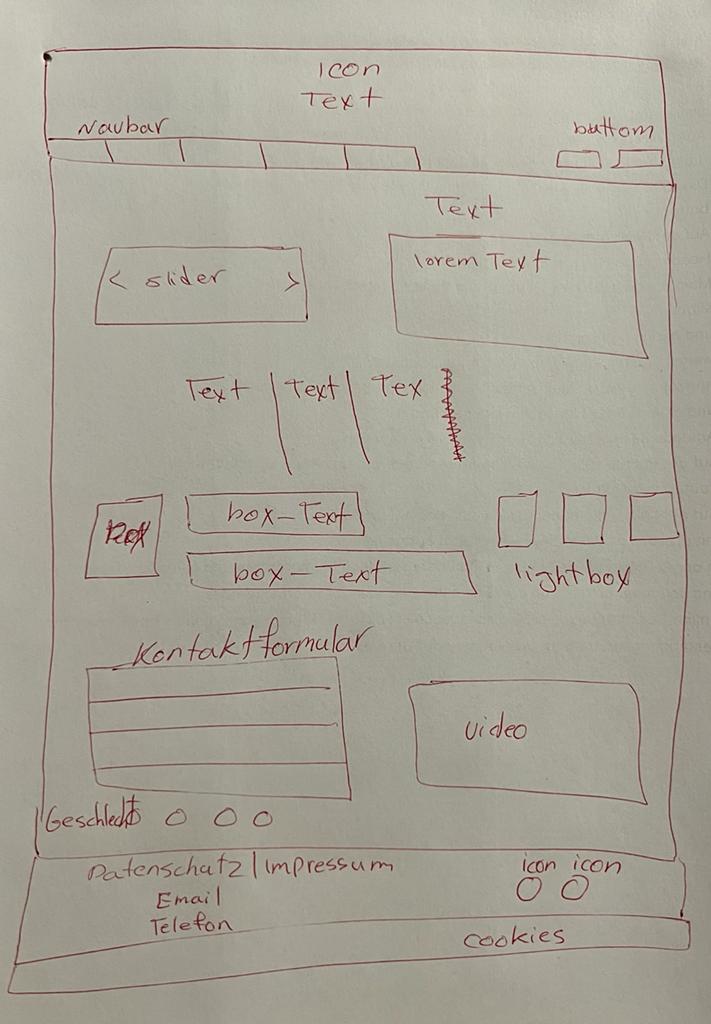 icon
Text
Navbar
buttom
Text
< slider >
lorem Text
Text | Text | Tex
box-Text
box-Text
lightbox
Kontaktformular
video
Geschlecht
Datenschutz | Impressum
icon icon
Email
Telefon
cookies